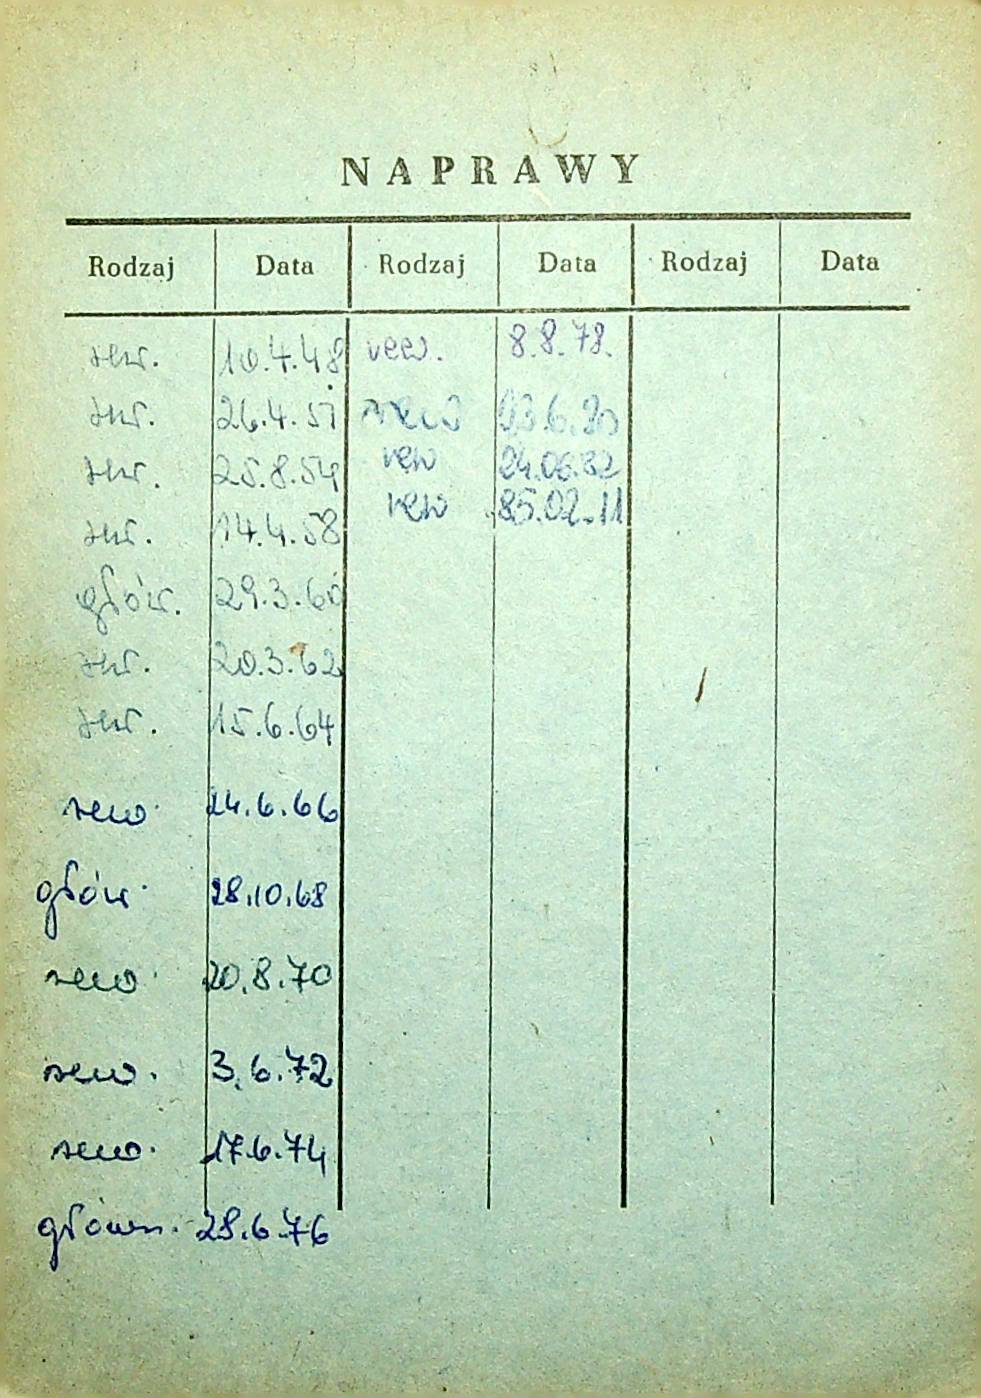 NAPRAWY
Rodzaj Data Rodzaj Data Rodzaj Data
rew. 10.4.48 rew. 8.8.78.
rew. 26.4.51 rew
rew. 25.8.54 rew 24.06.82
rew. 14.4.58 rew 85.02.11
głów. 29.3.60
rew. 20.3.62
rew. 15.6.64
rew. 24.6.66
głów. 28.10.68
rew. 20.8.70
rew. 3.6.72
rew. 17.6.74
główn. 28.6.76